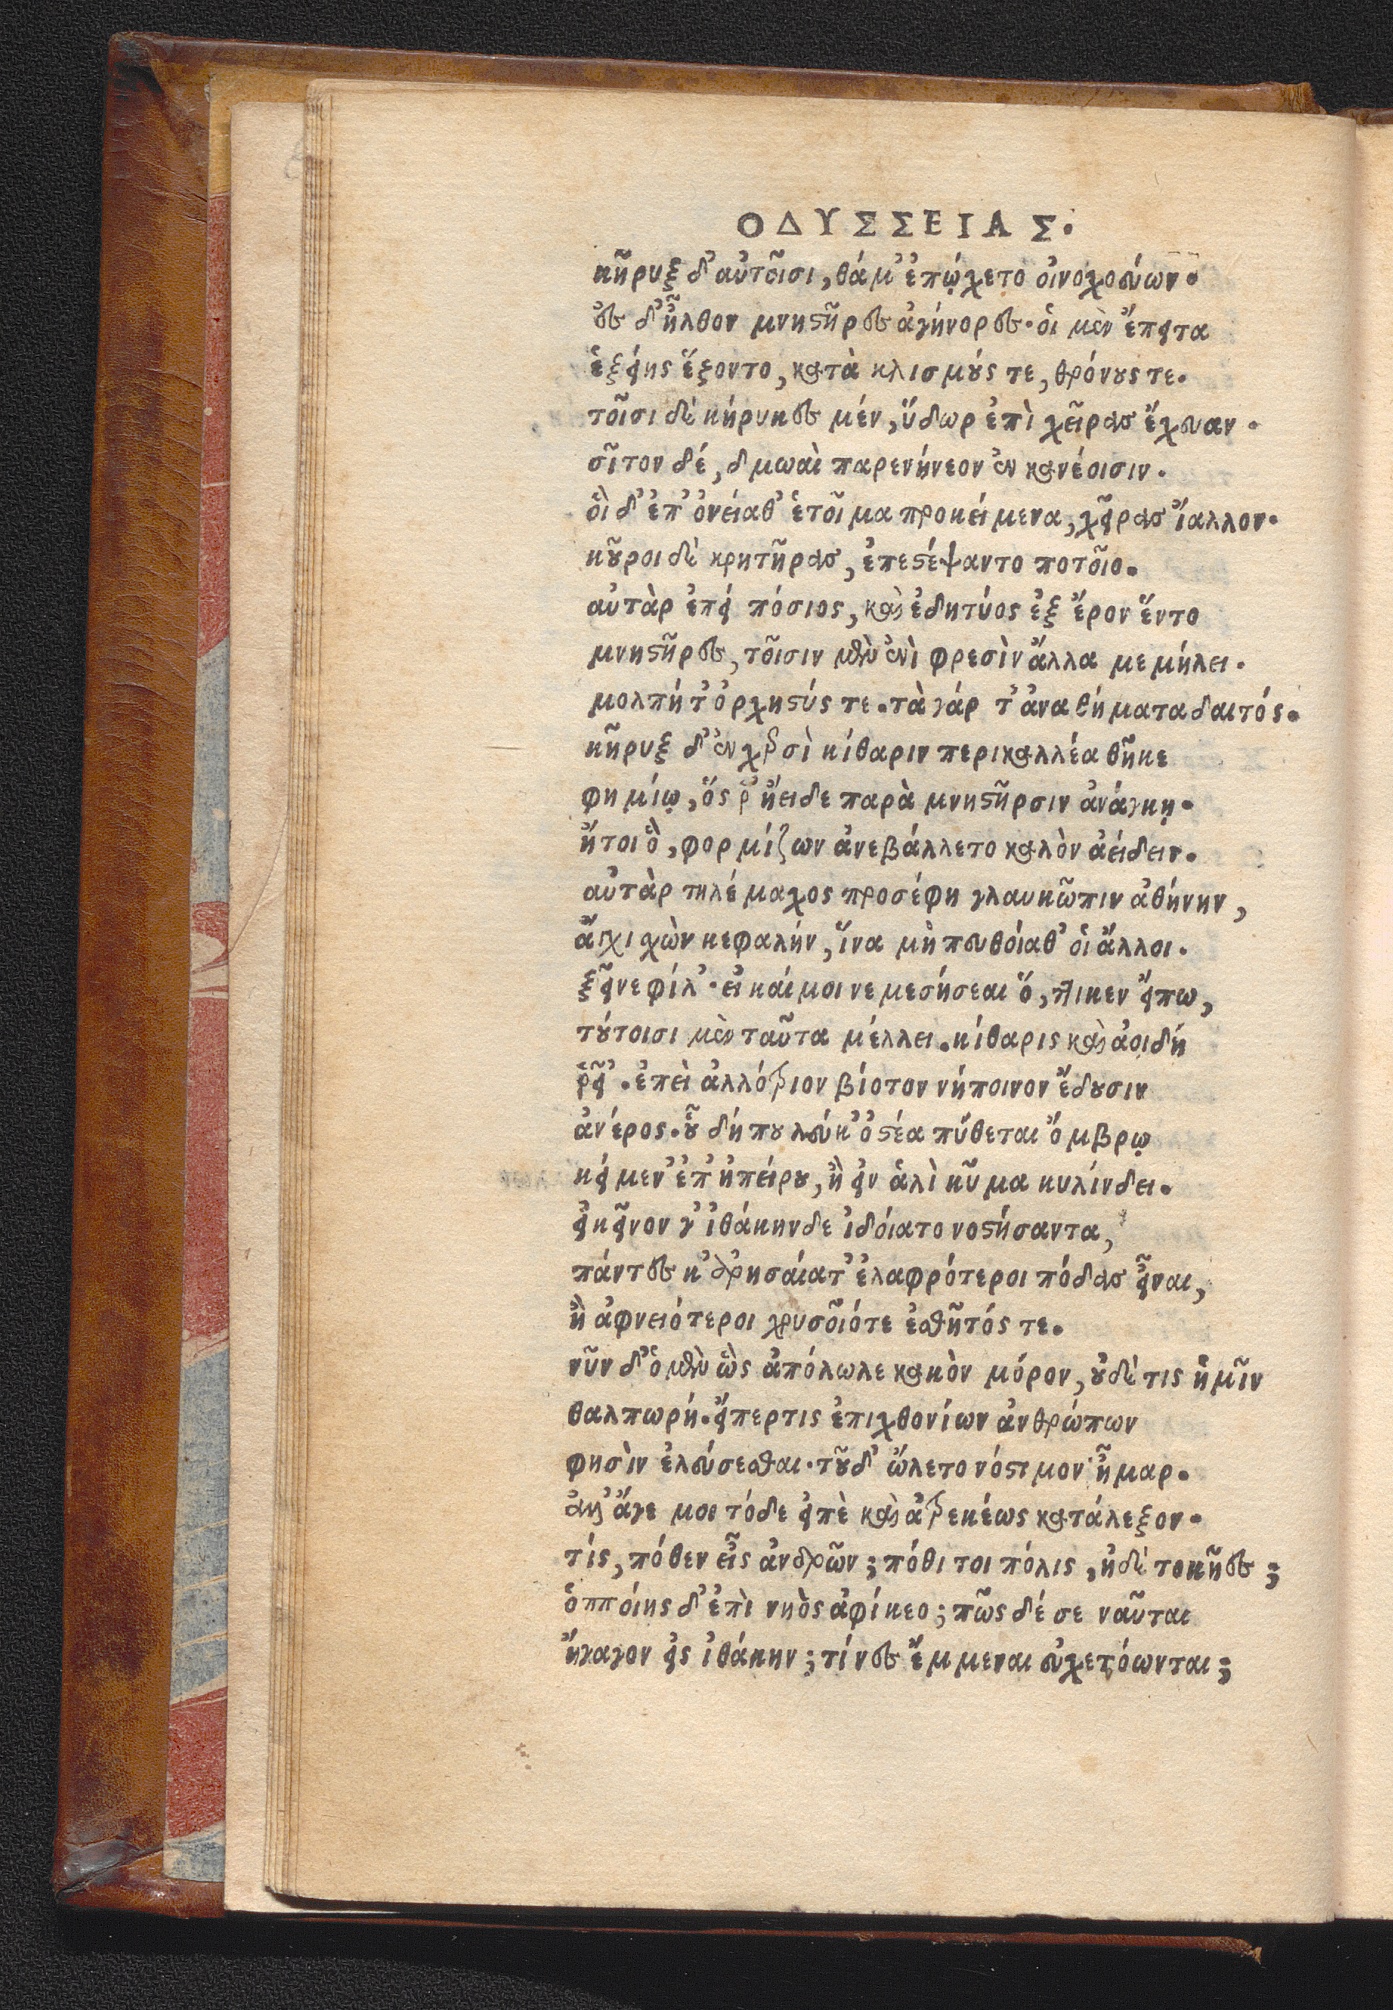 ΟΔΥΣΣΕΙΑΣ.
κῆρυξ δ' αὐτοῖσι, θάμ' ἐπῴχετο οἰνοχοεύων·
ἐς δ' ἦλθον μνηστῆρες ἀγήνορες· οἱ μὲν ἔπειτα
ἑξείης ἕζοντο, κατὰ κλισμούς τε, θρόνους τε.
τοῖσι δὲ κήρυκες μέν, ὕδωρ ἐπὶ χεῖρας ἔχευαν·
σῖτον δέ, δμωαὶ παρενήνεον ἐν κανέοισιν.
οἳ δ' ἐπ' ὀνείαθ' ἑτοῖμα προκείμενα, χεῖρας ἴαλλον·
κοῦροι δὲ κρητῆρας, ἐπεστέψαντο ποτοῖο.
αὐτὰρ ἐπεὶ πόσιος, καὶ ἐδητύος ἐξ ἔρον ἕντο
μνηστῆρες, τοῖσιν μὲν ἐνὶ φρεσὶν ἄλλα μεμήλει.
μολπή τ' ὀρχηστύς τε. τὰ γάρ τ' ἀναθήματα δαιτός.
κῆρυξ δ' ἐν χερσὶ κίθαριν περικαλλέα θῆκε
φημίῳ, ὅς ῥ' ἤειδε παρὰ μνηστῆρσιν ἀνάγκῃ.
ἤτοι ὃ, φορμίζων ἀνεβάλλετο καλὸν ἀείδειν.
αὐτὰρ τηλέμαχος προσέφη γλαυκῶπιν ἀθήνην,
ἄγχι χὼν κεφαλήν, ἵνα μὴ πευθοίαθ' οἱ ἄλλοι.
ξεῖνε φίλ'· εἰ καί μοι νεμεσήσεαι ὅ, ττικεν εἴπω,
τούτοισι μὲν ταῦτα μέλλει. κίθαρις καὶ ἀοιδή
ῥεῖ'. ἐπεὶ ἀλλότριον βίοτον νήποινον ἔδουσιν
ἀνέρος. οὗ δή που λεύκ' ὀστέα πύθεται ὄμβρῳ
κείμεν' ἐπ' ἠπείρου, ἢ εἰν ἁλὶ κῦμα κυλίνδει.
εἰ κεῖνον γ' ἰθάκηνδε ἰδοίατο νοστήσαντα,
πάντες κ' ἀρησαίατ' ἐλαφρότεροι πόδας εἶναι,
ἢ ἀφνειότεροι χρυσοῖότε ἐσθῆτός τε.
νῦν δ' ὁ μὲν ὣς ἀπόλωλε κακὸν μόρον, οὐδέ τις ἡμῖν
θαλπωρή. εἴπερτις ἐπιχθονίων ἀνθρώπων
φησὶν ἐλεύσεσθαι. τοῦδ' ὤλετο νόστιμον ἦμαρ.
ἀλλ' ἄγε μοι τόδε εἰπὲ καὶ ἀτρεκέως κατάλεξον·
τίς, πόθεν εἶς ἀνδρῶν; πόθι τοι πόλις, ἠδὲ τοκῆες;
ὁπποίης δ' ἐπὶ νηὸς ἀφίκεο; πῶς δέ σε ναῦται
ἤγαγον εἰς ἰθάκην; τίνες ἔμμεναι εὐχετόωνται;